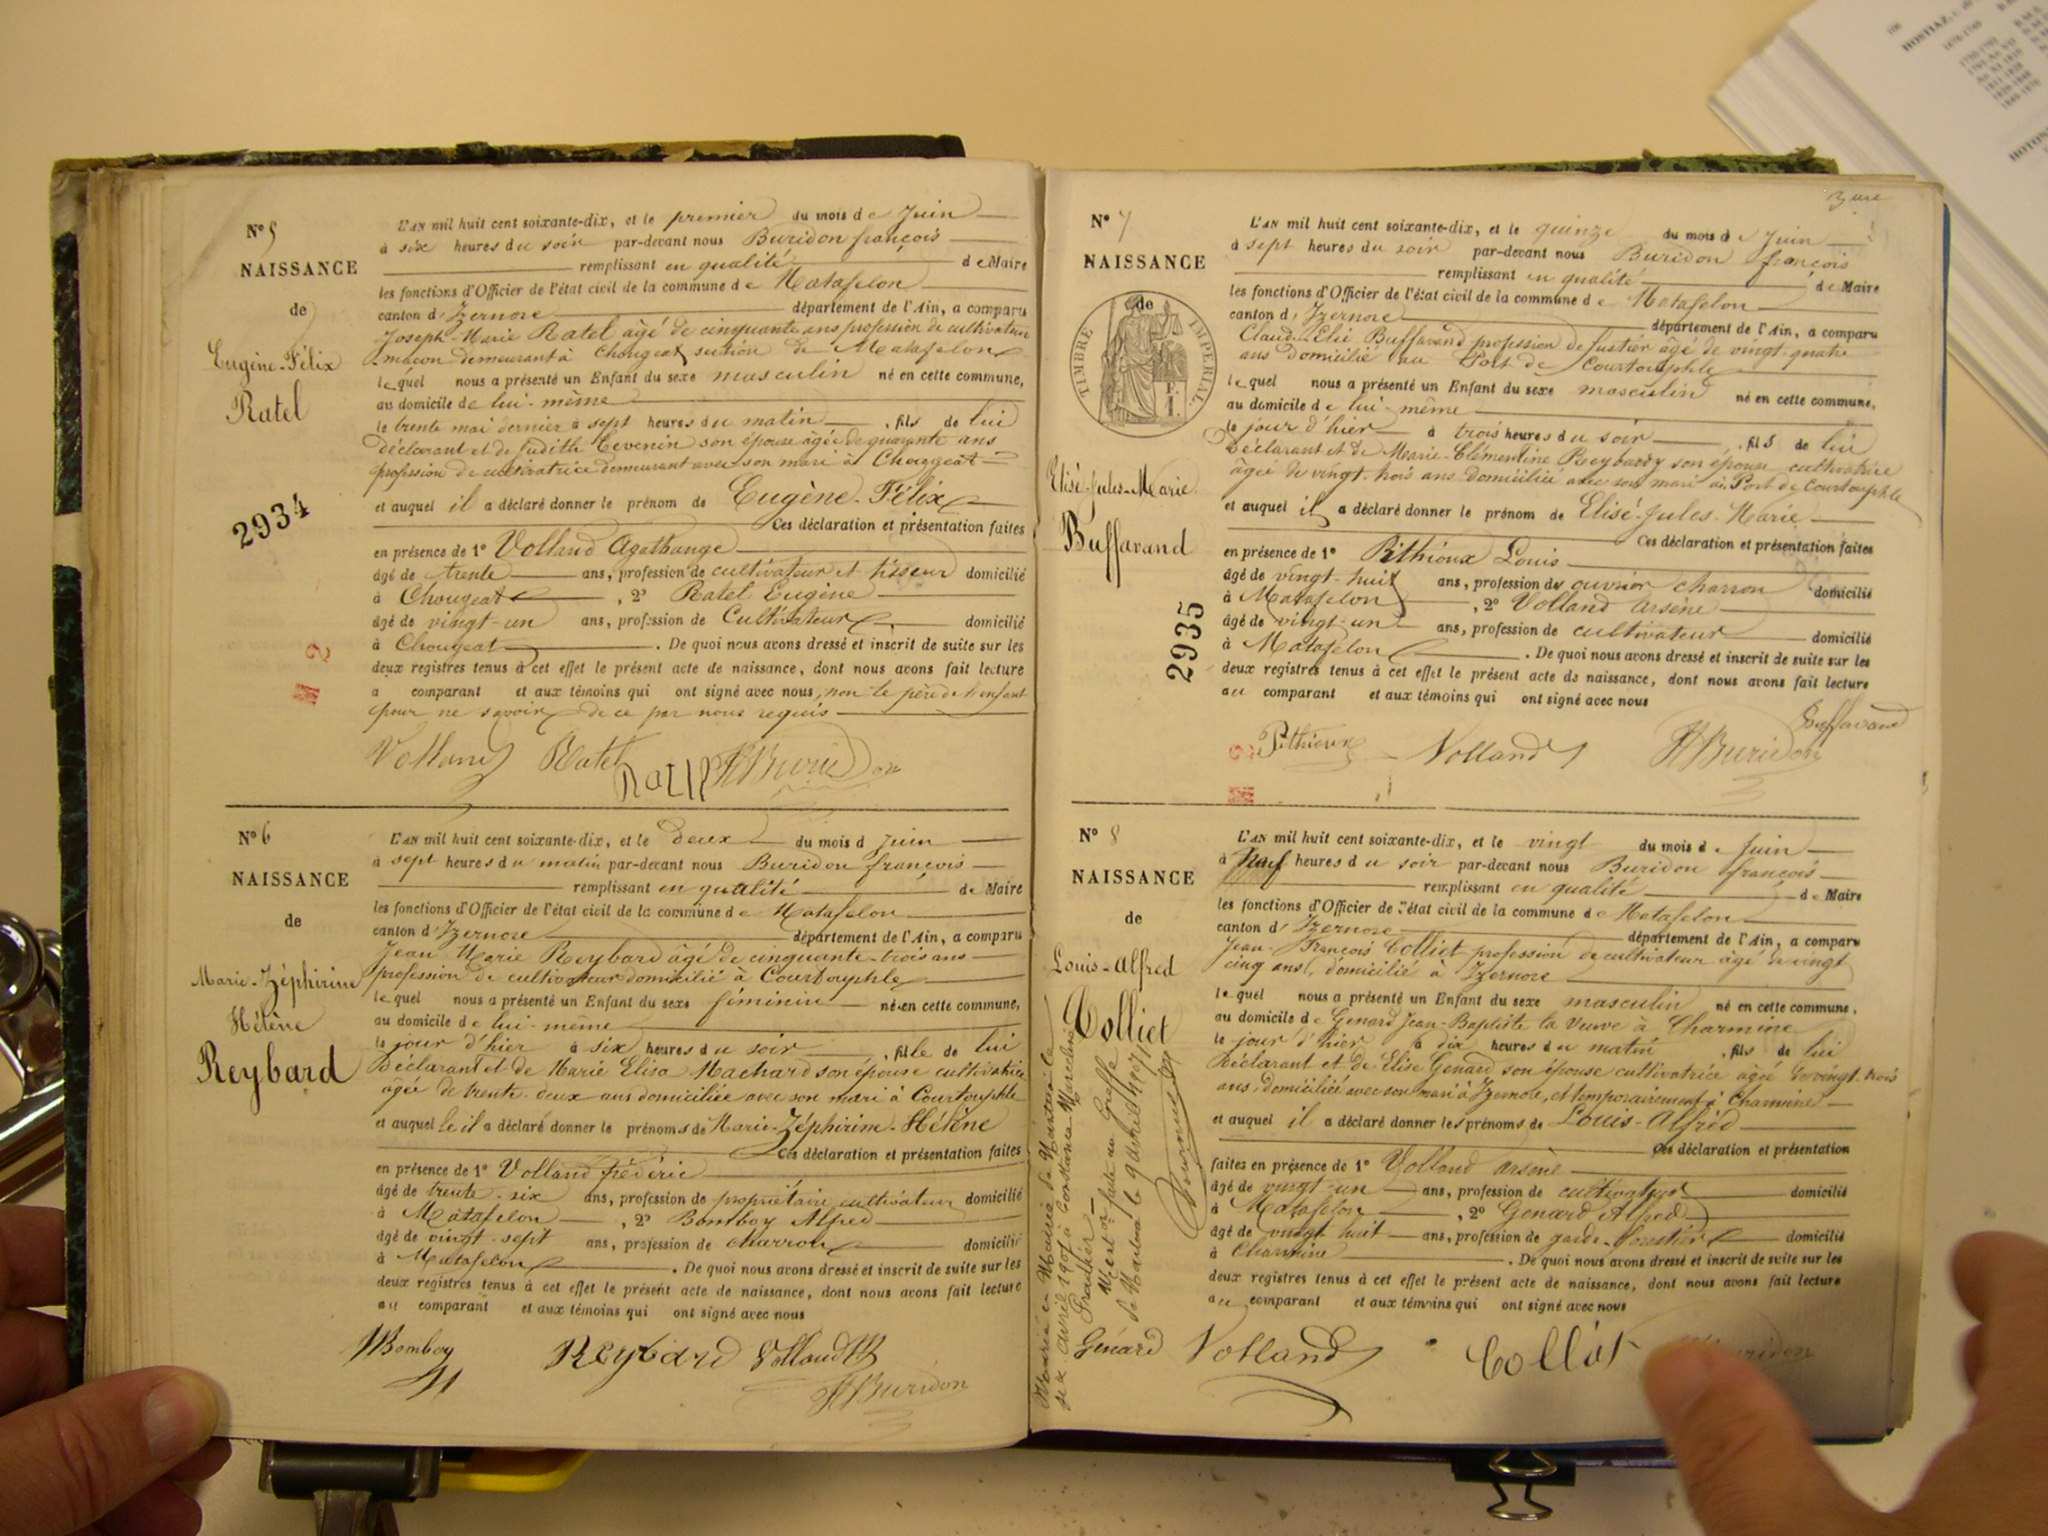 N° 5
NAISSANCE
de
Eugène-Félix
Ratel
2934
L'AN mil huit cent soixante-dix, et le premier du mois de Juin
à six heures du soir par-devant nous Buridon françois
remplissant en qualité de Maire
les fonctions d'Officier de l'état civil de la commune de Matafelon
canton d'Izernore département de l'Ain, a comparu
Joseph-Marie Ratel âgé de cinquante ans profession de cultivateur
maçon demeurant à Chougeat section de Matafelon
lequel nous a présenté un Enfant du sexe masculin né en cette commune,
au domicile de lui-même
le trente mai dernier à sept heures du matin, fils de lui
Déclarant et de Judith Tevenin son épouse âgée de quarante ans
profession de cultivatrice demeurant avec son mari à Chougeat
et auquel il a déclaré donner le prénom de Eugène-Félix
Ces déclaration et présentation faites
en présence de 1° Volland Agathange
âgé de trente ans, profession de cultivateur et tisseur domicilié
à Chougeat, 2° Ratel Eugène
âgé de vingt-un ans, profession de Cultivateur domicilié
à Chougeat. De quoi nous avons dressé et inscrit de suite sur les
deux registres tenus à cet effet le présent acte de naissance, dont nous avons fait lecture
a comparant et aux témoins qui ont signé avec nous, non le père de l'enfant
pour ne savoir de ce par nous requis
Volland Ratel Ratel Buridon
N° 6
NAISSANCE
de
Marie-Zéphirine
Hélène
Reybard
L'AN mil huit cent soixante-dix, et le deux du mois d Juin
à sept heures du matin par-devant nous Buridon françois
remplissant en qualité de Maire
les fonctions d'Officier de l'état civil de la commune de Matafelon
canton d'Izernore département de l'Ain, a comparu
Jean Marie Reybard âgé de cinquante-trois ans
profession de cultivateur domicilié à Courtouphle
lequel nous a présenté un Enfant du sexe féminin né en cette commune,
au domicile de lui-même
le jour d'hier à six heures du soir, fille de lui
Déclarant et de Marie Elisa Machard son épouse cultivatrice
âgée de trente-deux ans domiciliée avec son mari à Courtouphle
et auquelle il a déclaré donner le prénoms de Marie-Zéphirine-Hélène
Ces déclaration et présentation faites
en présence de 1° Volland frédéric
âgé de trente-six ans, profession de propriétaire cultivateur domicilié
à Matafelon, 2° Bomboy Alfred
âgé de vingt-sept ans, profession de charron domicilié
à Matafelon. De quoi nous avons dressé et inscrit de suite sur les
deux registres tenus à cet effet le présent acte de naissance, dont nous avons fait lecture
au comparant et aux témoins qui ont signé avec nous
Bomboy Reybard Volland Buridon
N° 7
NAISSANCE
de
TIMBRE IMPERIAL
Elisé-Jules-Marie
Buffavand
2935
L'AN mil huit cent soixante-dix, et le quinze du mois de Juin
à sept heures du soir par-devant nous Buridon françois
remplissant en qualité de Maire
les fonctions d'Officier de l'état civil de la commune de Matafelon
canton d'Izernore département de l'Ain, a comparu
Claude-Elie Buffavand profession de fustier âgé de vingt-quatre
ans domicilié au Port de Courtouphle
lequel nous a présenté un Enfant du sexe masculin né en cette commune,
au domicile de lui-même
le jour d'hier à trois heures du soir, fils de lui
Déclarant et de Marie-Clémentine Reybard son épouse cultivatrice
âgée de vingt-trois ans domiciliée avec son mari au Port de Courtouphle
et auquel il a déclaré donner le prénom de Elisé-Jules-Marie
Ces déclaration et présentation faites
en présence de 1° Pithioux Louis
âgé de vingt-huit ans, profession de ouvrier charron domicilié
à Matafelon, 2° Volland Arsène
âgé de vingt-un ans, profession de cultivateur domicilié
à Matafelon. De quoi nous avons dressé et inscrit de suite sur les
deux registres tenus à cet effet le présent acte de naissance, dont nous avons fait lecture
au comparant et aux témoins qui ont signé avec nous
Buffavand
Pithioux Volland Buridon
N° 8
NAISSANCE
de
Louis-Alfred
Colliet
Marié en Mairie de Nantua le
six avril 1907 à Constance Marceline
L'AN mil huit cent soixante-dix, et le vingt du mois de Juin
à Neuf heures du soir par-devant nous Buridon françois
remplissant en qualité de Maire
les fonctions d'Officier de l'état civil de la commune de Matafelon
canton d'Izernore département de l'Ain, a comparu
Jean-François Colliet profession de cultivateur âgé de vingt
cinq ans, domicilié à Izernore
lequel nous a présenté un Enfant du sexe masculin né en cette commune,
au domicile de Genard Jean-Baptiste la veuve à Charmine
le jour d'hier à dix heures du matin, fils de lui
Déclarant et de Elise Genard son épouse cultivatrice âgée de vingt-trois
ans, domiciliée avec son mari à Izernore, et temporairement à Charmine
et auquel il a déclaré donner les prénoms de Louis-Alfred
Ces déclaration et présentation
faites en présence de 1° Volland Arsène
âgé de vingt-un ans, profession de cultivateur domicilié
à Matafelon, 2° Genard Alfred
âgé de vingt huit ans, profession de garde-forestier domicilié
à Charmine. De quoi nous avons dressé et inscrit de suite sur les
deux registres tenus à cet effet le présent acte de naissance, dont nous avons fait lecture
au comparant et aux témoins qui ont signé avec nous
Génard Volland Colliet Buridon